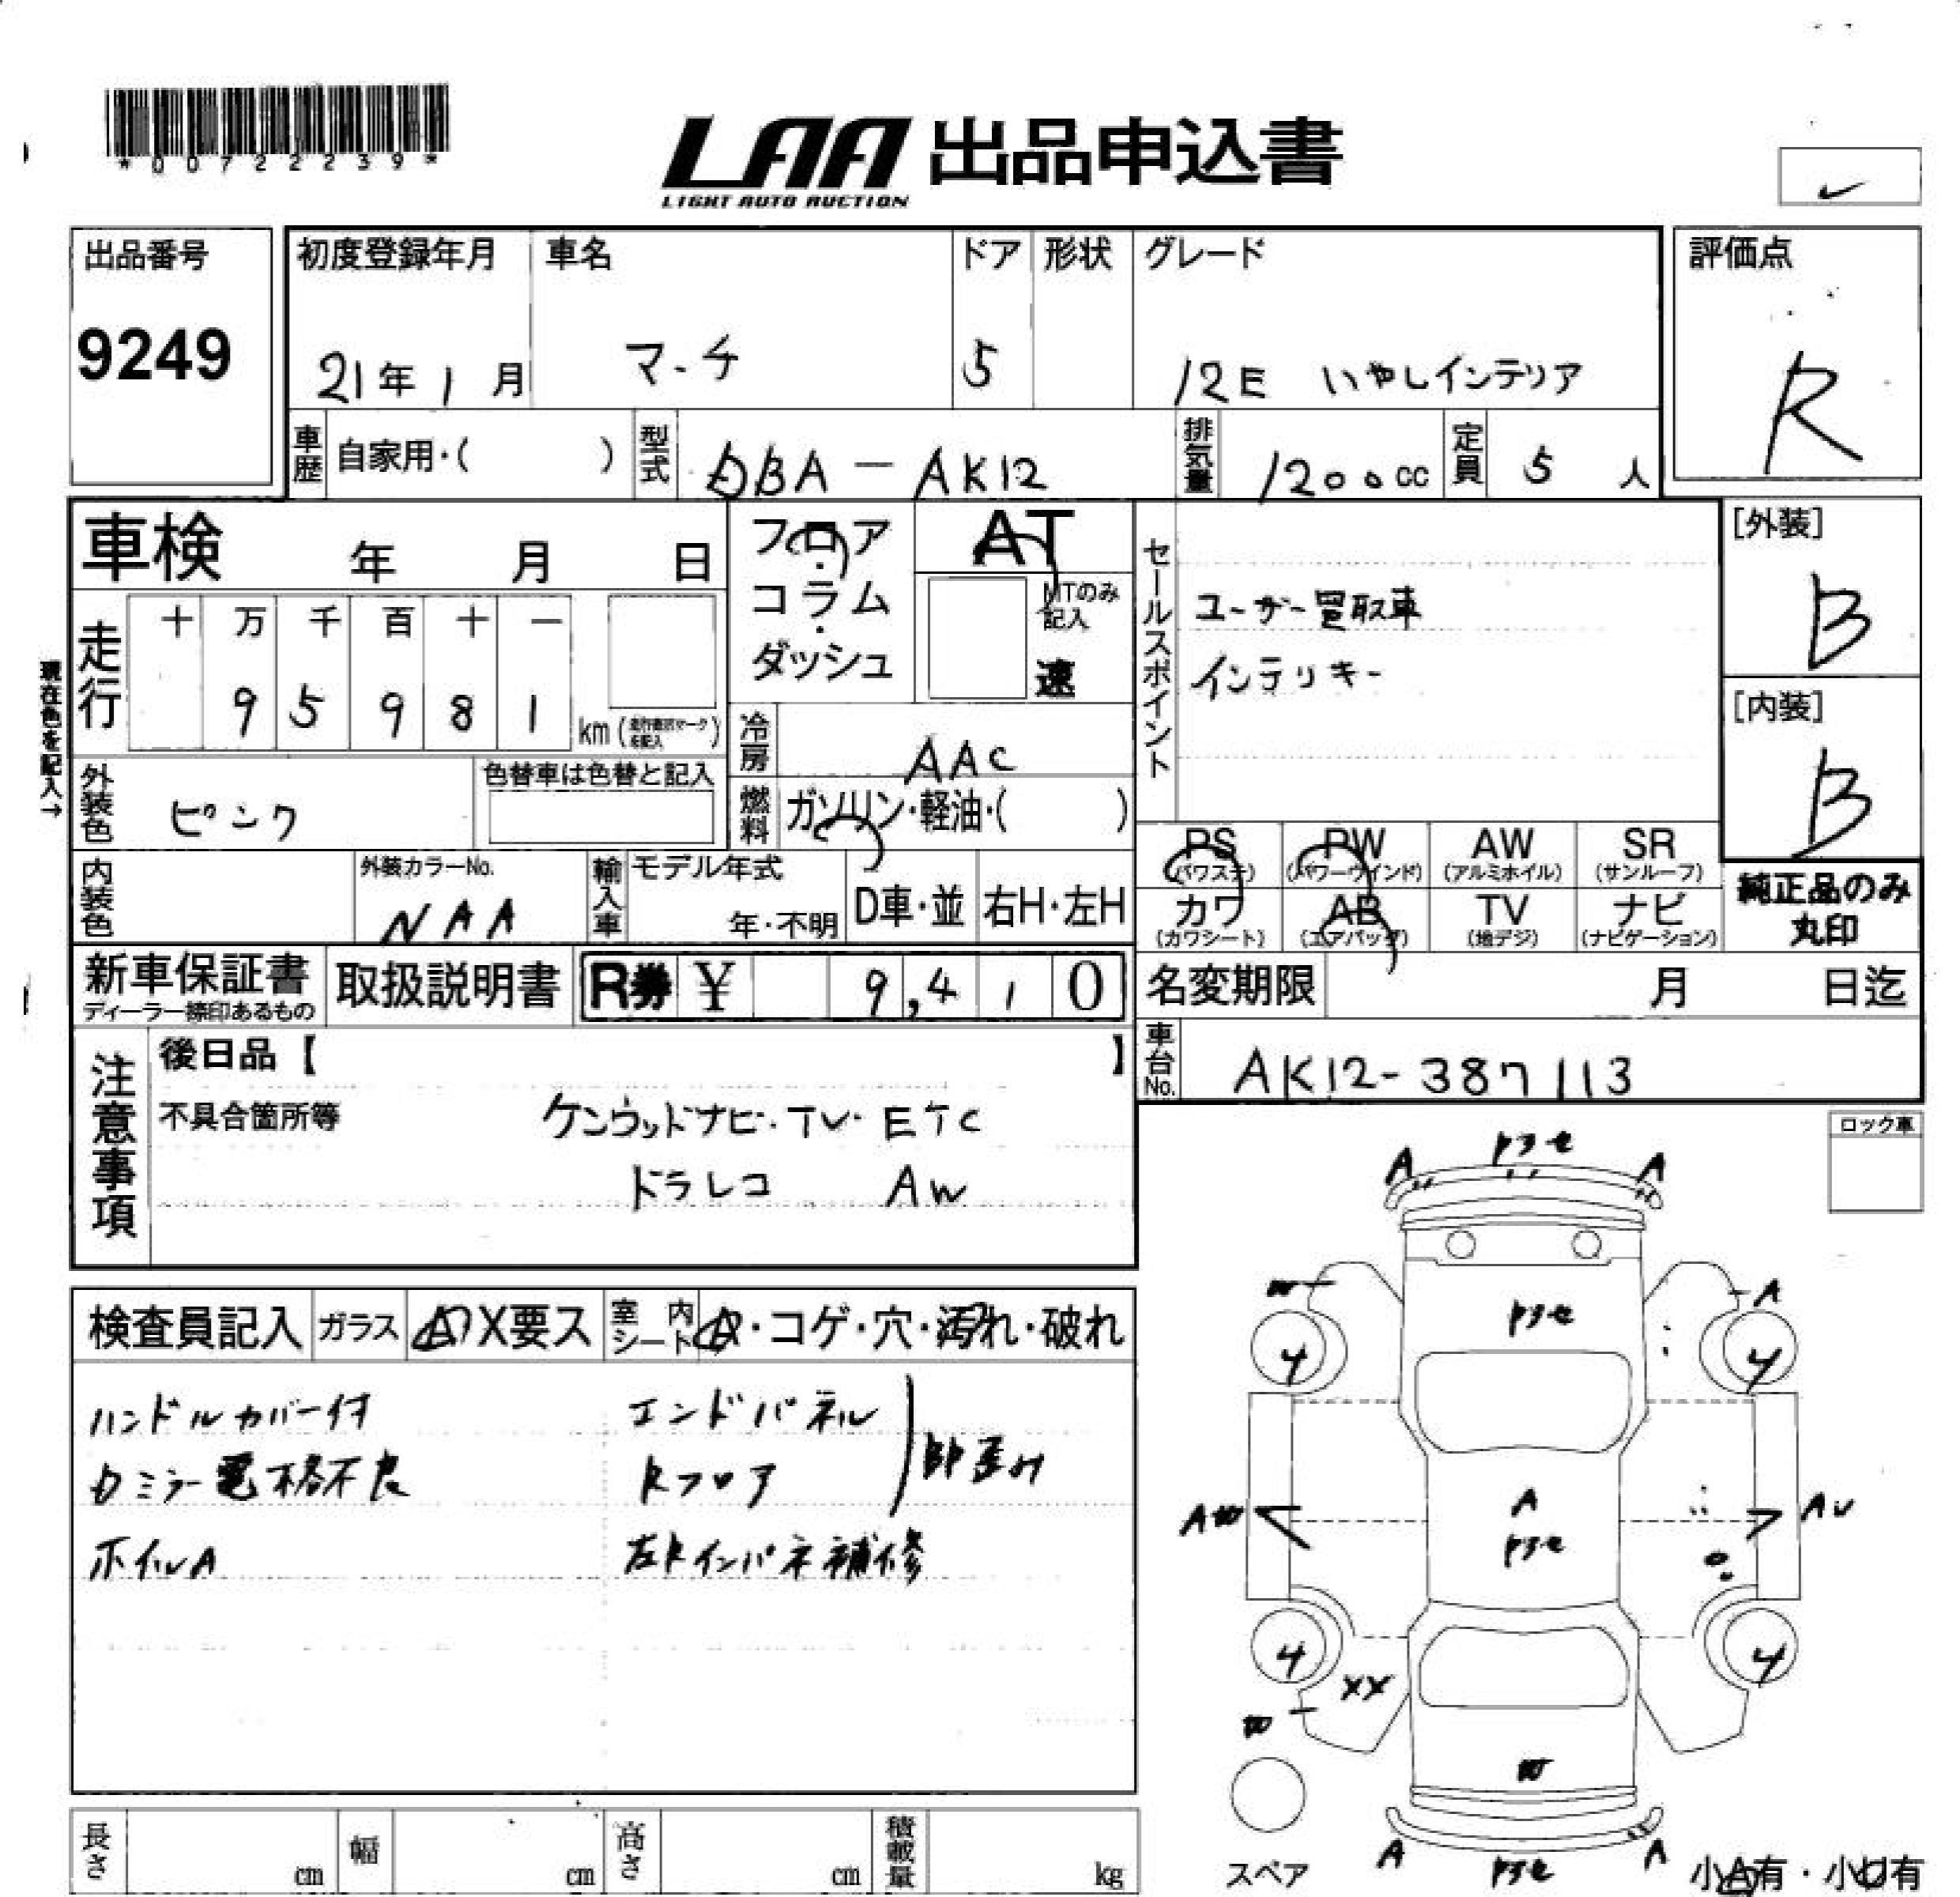 *00722239*
LAA 出品申込書
LIGHT AUTO AUCTION
出品番号
9249
初度登録年月
21年1月
車名
マーチ
ドア
5
形状
グレード
12E いやしインテリア
評価点
R
車歴 自家用・( )
型式 DBA-AK12
排気量 1200cc
定員 5人
車検 年 月 日
現在色を記入→
走行 十 万 千 百 十 一
9 5 9 8 1 km
フロア・コラム・ダッシュ
AT
MTのみ記入
速
セールスポイント
ユーザー買取車
インテリキー
[外装]
B
[内装]
B
外装色 ピンク
色替車は色替と記入
冷房 AAC
燃料 ガソリン・軽油・( )
内装色
外装カラーNo.
NAA
輸入車 モデル年式
年・不明
D車・並
右H・左H
PS (パワステ)
PW (パワーウインド)
AW (アルミホイル)
SR (サンルーフ)
カワ (カワシート)
AB (エアバッグ)
TV (地デジ)
ナビ (ナビゲーション)
純正品のみ丸印
新車保証書
ディーラー捺印あるもの
取扱説明書
R券 ¥ 9,410
名変期限 月 日迄
車台No. AK12-387113
注意事項
後日品【 】
不具合箇所等
ケンウッドナビ・TV・ETC
ドラレコ AW
ロック車
検査員記入
ガラス A・X要ス
室内シート A・コゲ・穴・汚れ・破れ
ハンドルカバー付
エンドパネル
Rフロア
カミラー電格不良
ホイルA
左Rインパネ補修
A A
W A
4 4
AW AU
A
4 4
XX
W
W
A A
スペア
小A有・小U有
長さ cm
幅 cm
高さ cm
積載量 kg